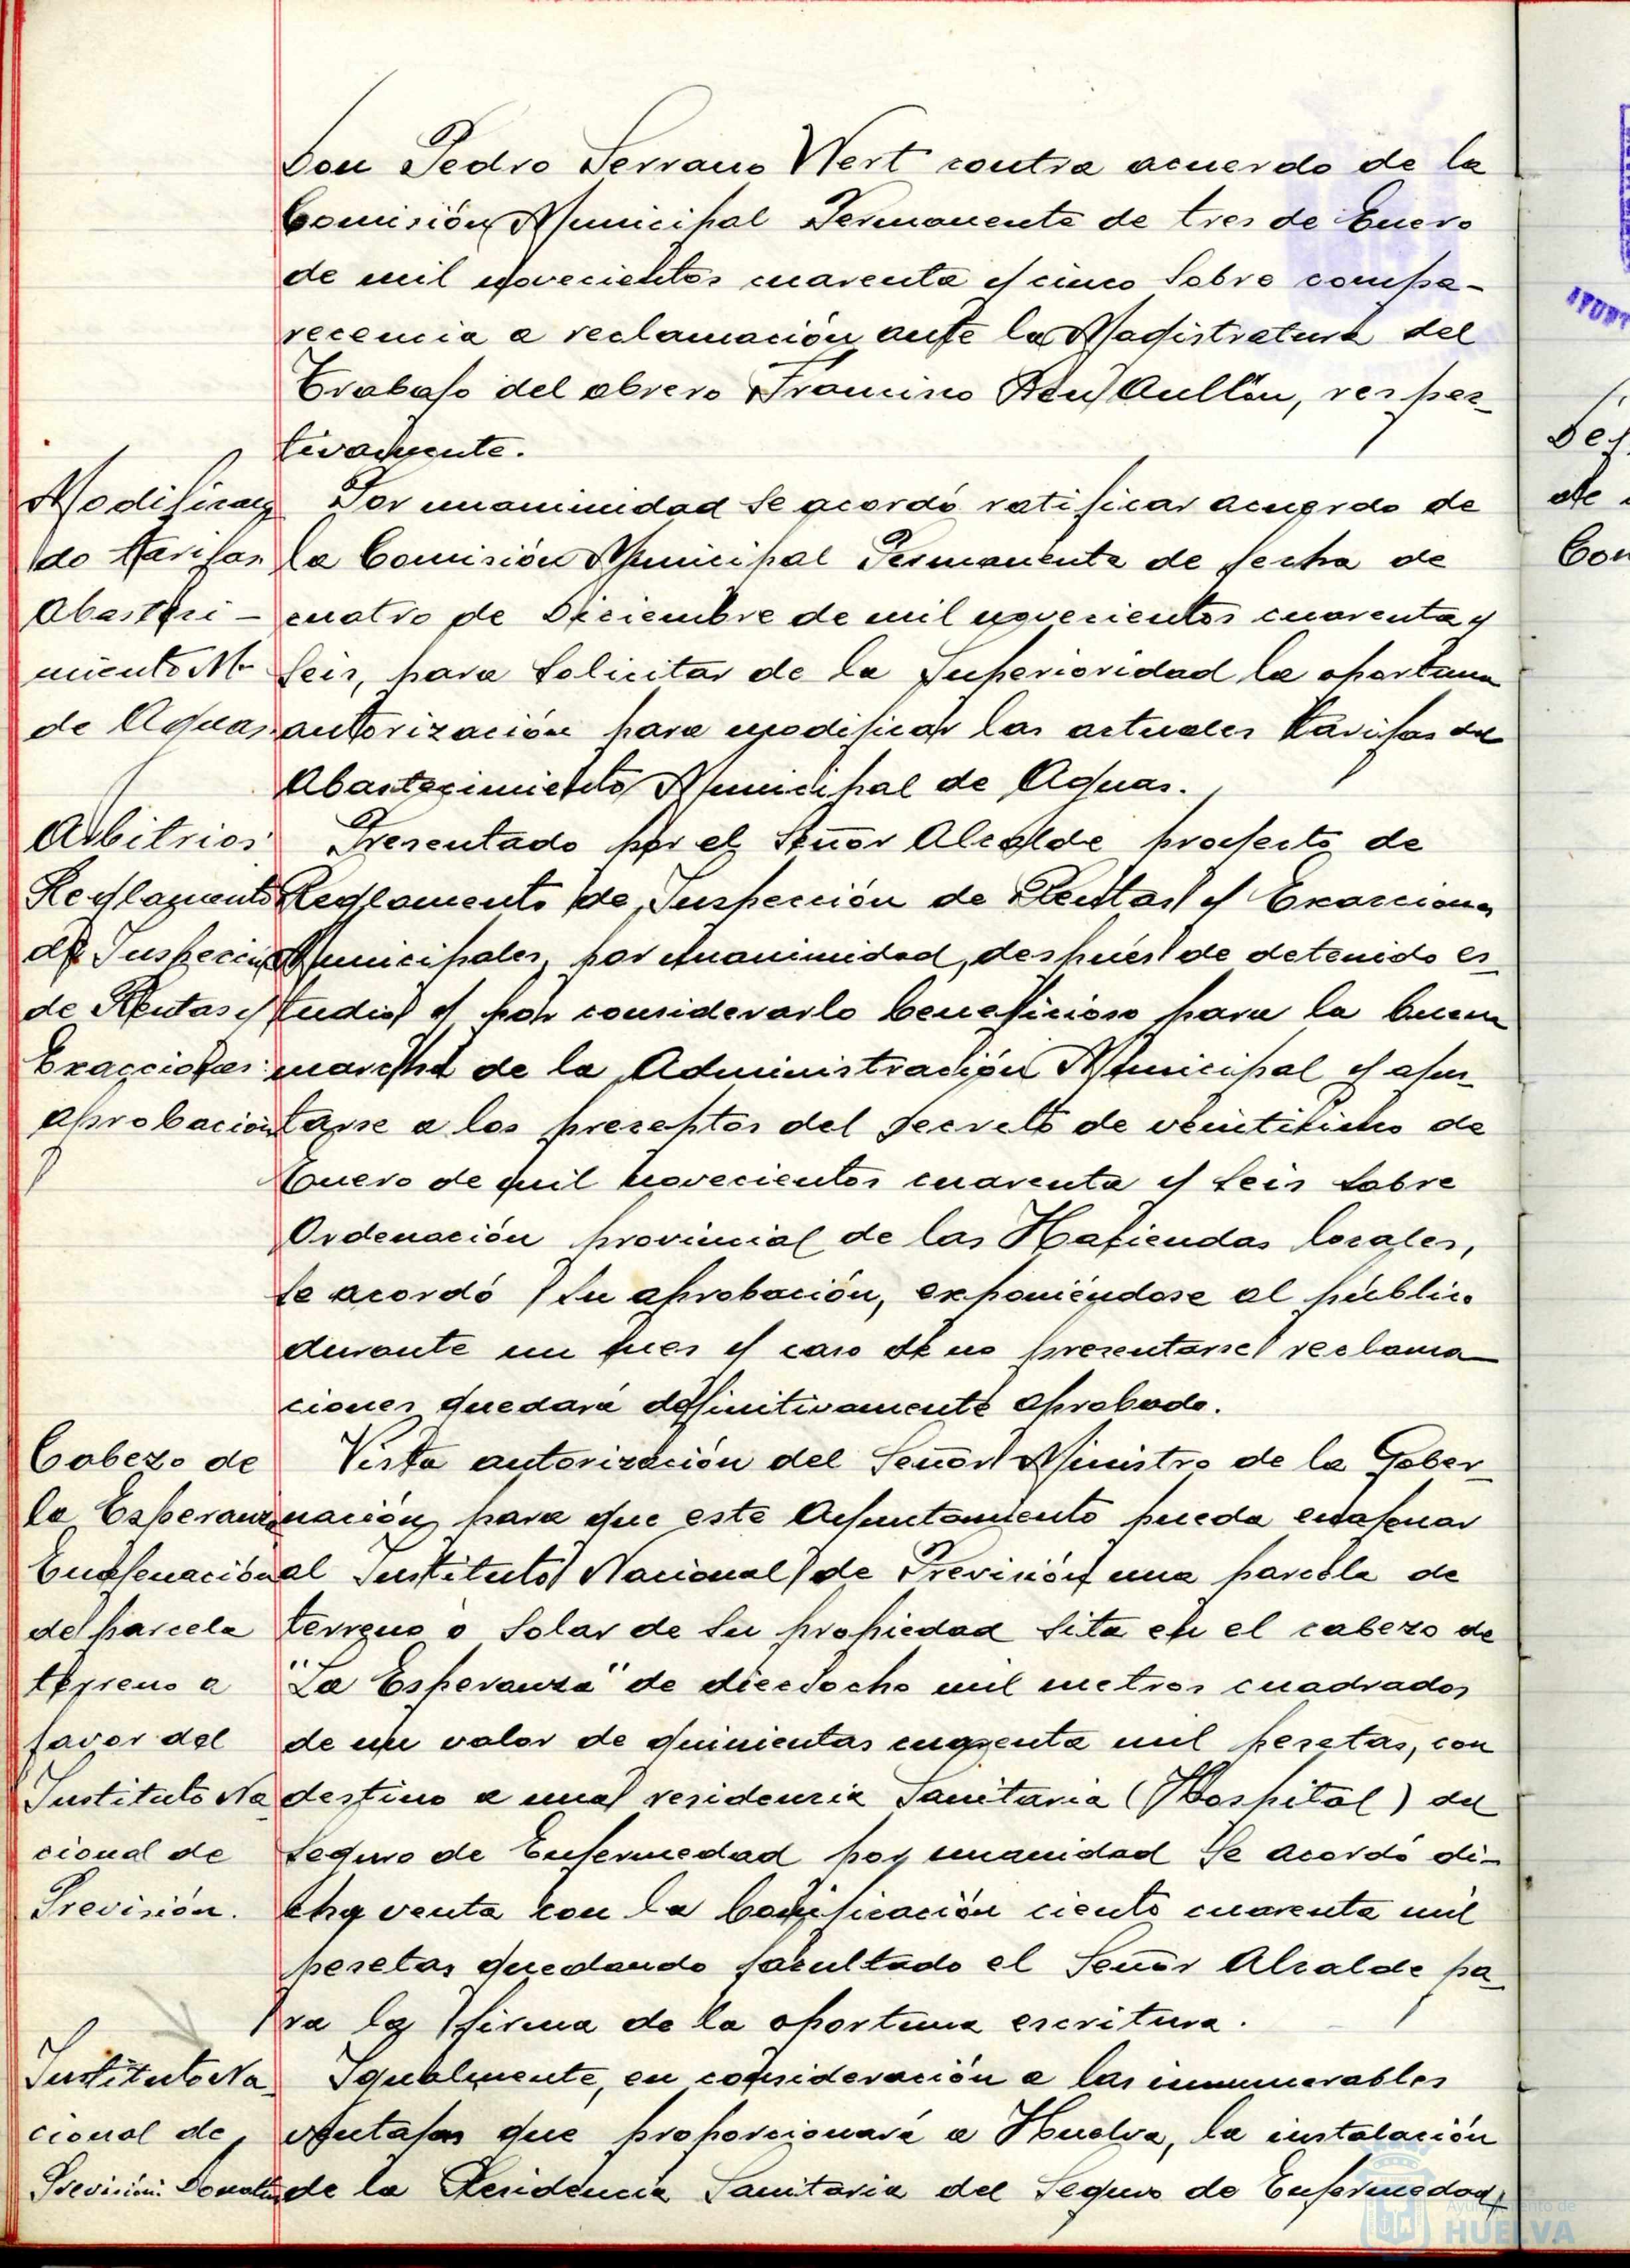 Don Pedro Serrano Wert contra acuerdo de la
Comisión Municipal Permanente de tres de Enero
de mil novecientos cuarenta y cinco sobre compa-
recencia a reclamación ante la Magistratura del
Trabajo del obrero Francisco Aullón, respec-
tivamente.
Modifican
do tarifas
Abasteci-
miento M.
de Aguas
Por unanimidad se acordó ratificar acuerdo de
la Comisión Municipal Permanente de fecha de
cuatro de Diciembre de mil novecientos cuarenta y
seis, para solicitar de la Superioridad la oportuna
autorización para modificar las actuales tarifas del
Abastecimiento Municipal de Aguas.
Arbitrios
Reglamento
de Inspección
de Rentas y
Exacciones:
aprobación
Presentado por el Señor Alcalde proyecto de
Reglamento de Inspección de Rentas y Exacciones
Municipales, por unanimidad, después de detenido es-
tudio y por considerarlo beneficioso para la buena
marcha de la Administración Municipal y ajus-
tarse a los preceptos del Decreto de veinticinco de
Enero de mil novecientos cuarenta y seis sobre
Ordenación provincial de las Haciendas locales,
se acordó su aprobación, exponiéndose al público
durante un mes y caso de no presentarse reclama-
ciones quedará definitivamente aprobado.
Cabezo de
la Esperanza
Enajenación
de parcela
terreno a
favor del
Instituto Na-
cional de
Previsión.
Vista autorización del Señor Ministro de la Gober-
nación para que este Ayuntamiento pueda enajenar
al Instituto Nacional de Previsión una parcela de
terreno o solar de su propiedad sita en el cabezo de
"La Esperanza" de dieciocho mil metros cuadrados
de un valor de quinientas cuarenta mil pesetas, con
destino a una residencia Sanitaria (Hospital) del
Seguro de Enfermedad por unanidad se acordó di-
cha venta con la bonificación ciento cuarenta mil
pesetas quedando facultado el Señor Alcalde pa-
ra la firma de la oportuna escritura.
Instituto Na-
cional de
Previsión: Donativo
Igualmente, en consideración a las innumerables
ventajas que proporcionará a Huelva, la instalación
de la Residencia Sanitaria del Seguro de Enfermedad,
de
Con
Ayuntamiento de
HUELVA